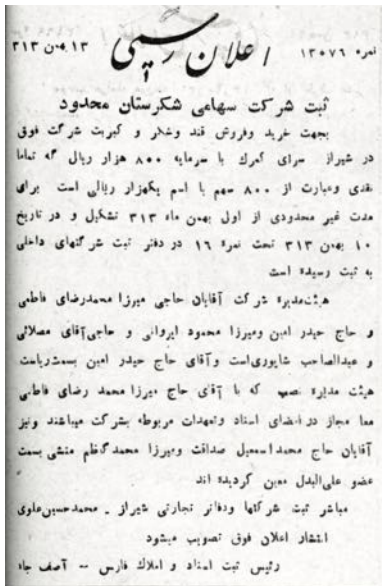 نمره ۱۳۰۷۶ اعلان رسمی ۱۳ بهمن ۳۱۳
ثبت شرکت سهامی شکرستان محدود
بجهت خرید وفروش قند وشکر و کبریت شرکت فوق
در شیراز سرای گمرک با سرمایه ۸۰۰ هزار ریال که تماما
نقدی وعبارت از ۸۰۰ سهم با اسم یکهزار ریالی است برای
مدت غیر محدودی از اول بهمن ماه ۳۱۳ تشکیل و در تاریخ
۱۰ بهمن ۳۱۳ تحت نمره ۱۶ در دفتر ثبت شرکتهای داخلی
به ثبت رسیده است
هیئت‌مدیره شرکت آقایان حاجی میرزا محمدرضای فاطمی
و حاج حیدر امین ومیرزا محمود ایروانی و حاجی‌آقای مصلائی
و عبدالصاحب شاپوری‌است وآقای حاج حیدر امین بسمت‌ریاست
هیئت مدیره نصب که با آقای حاج میرزا محمد رضای فاطمی
معا مجاز در امضای اسناد وتعهدات مربوطه بشرکت میباشند ونیز
آقایان حاج محمداسمعیل صداقت ومیرزا محمدکاظم منشی بسمت
عضو علی‌البدل معین گردیده اند
مباشر ثبت شرکتها ودفاتر تجارتی شیراز ـ محمدحسین‌علوی
انتشار اعلان فوق تصویب میشود
رئیس ثبت اسناد و املاک فارس -- آصف جاه